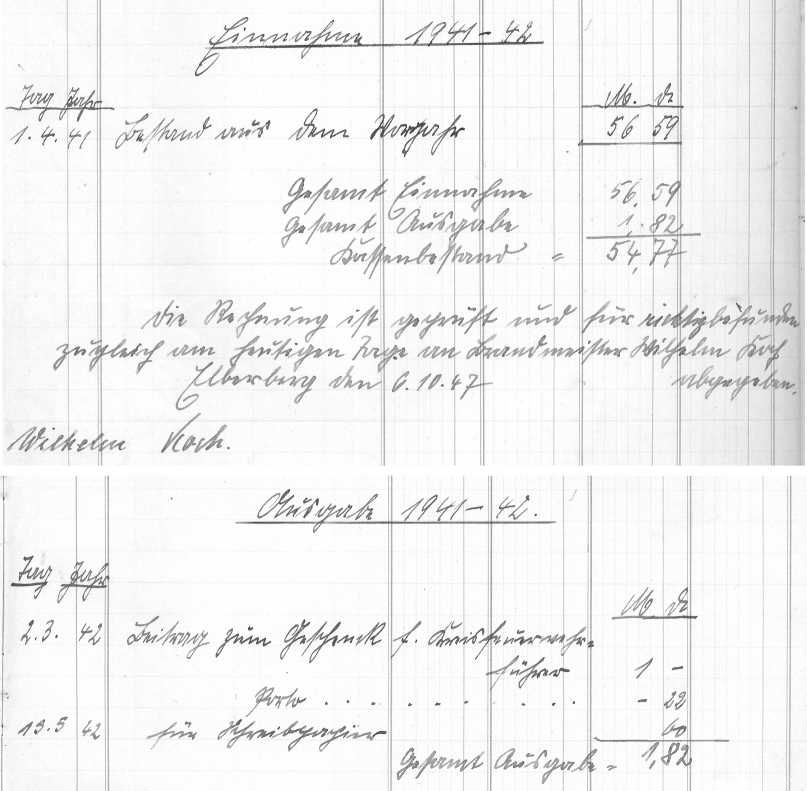 Einnahme 1941-42
Tag Jahr M. d
1.4.41 Bestand aus dem Vorjahr 56 59
Gesamt Einnahme 56,59
Gesamt Ausgabe 1,82
Kassenbestand = 54,77
Die Rechnung ist geprüft und für richtig befunden
zugleich am heutigen Tage an Brandmeister Wilhelm Koch
Elberberg den 6.10.47 abgegeben.
Wilhelm Koch.
Ausgabe 1941-42.
Tag Jahr
M d
2.3. 42 Beitrag zum Geschenk f. Kreisfeuerwehr=
führer 1 -
Porto . . . . . . . . . - 22
13.5 42 für Schreibpapier 60
Gesamt Ausgabe = 1,82